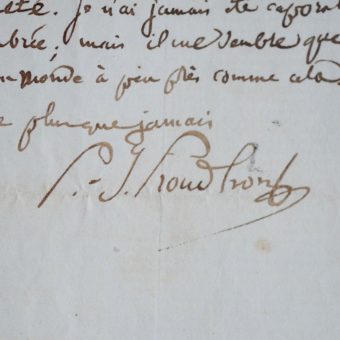 été. je n'ai jamais été caporal
brée; mais il me semble que
monde à peu près comme cela
plus que jamais
P.-J. Proudhon